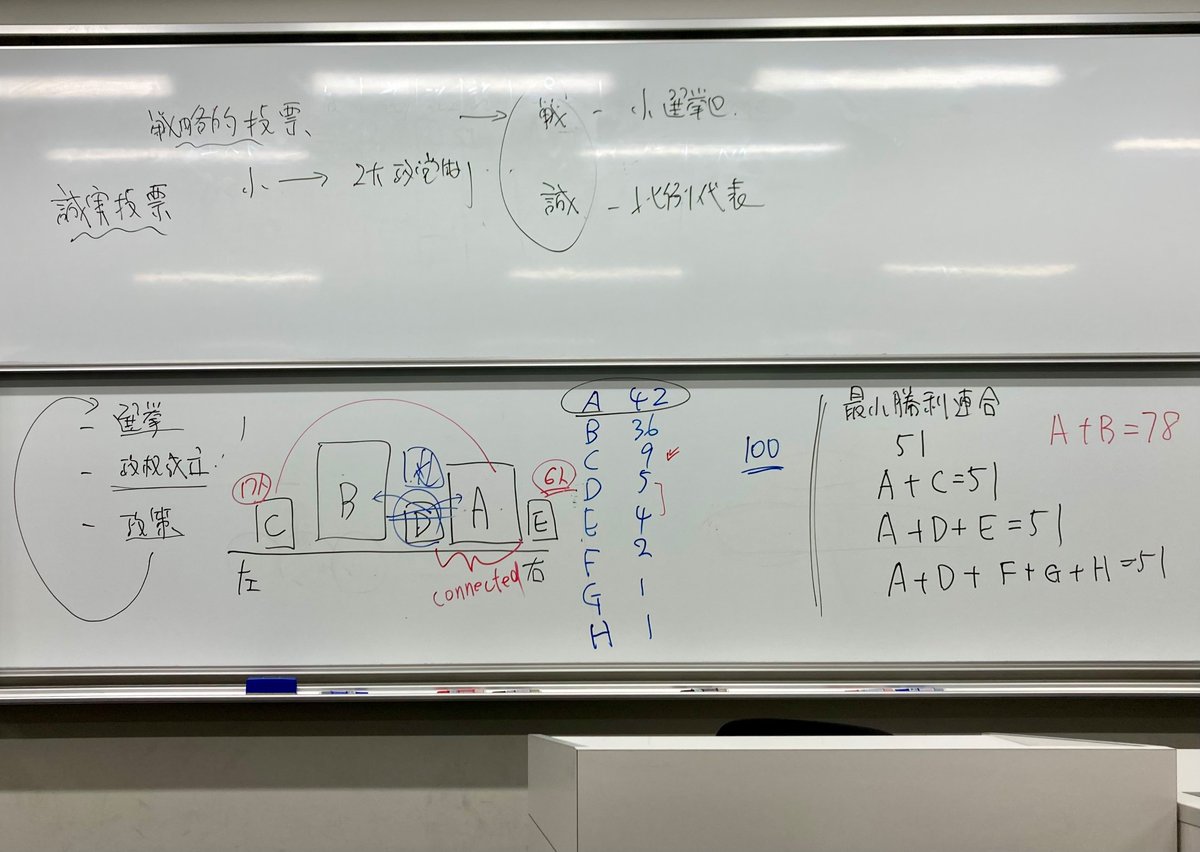 戦略的投票
→ 戦 - 小選挙区
小 → 2大政党制
誠実投票
誠 - 比例代表
- 選挙
- 政权成立
- 政策
C
B
D
A
E
左
右
connected
A 42
B 36
C 9
D 5
E 4
F 2
G 1
H 1
100
最小勝利連合
51
A+C=51
A+D+E=51
A+D+F+G+H=51
A+B=78